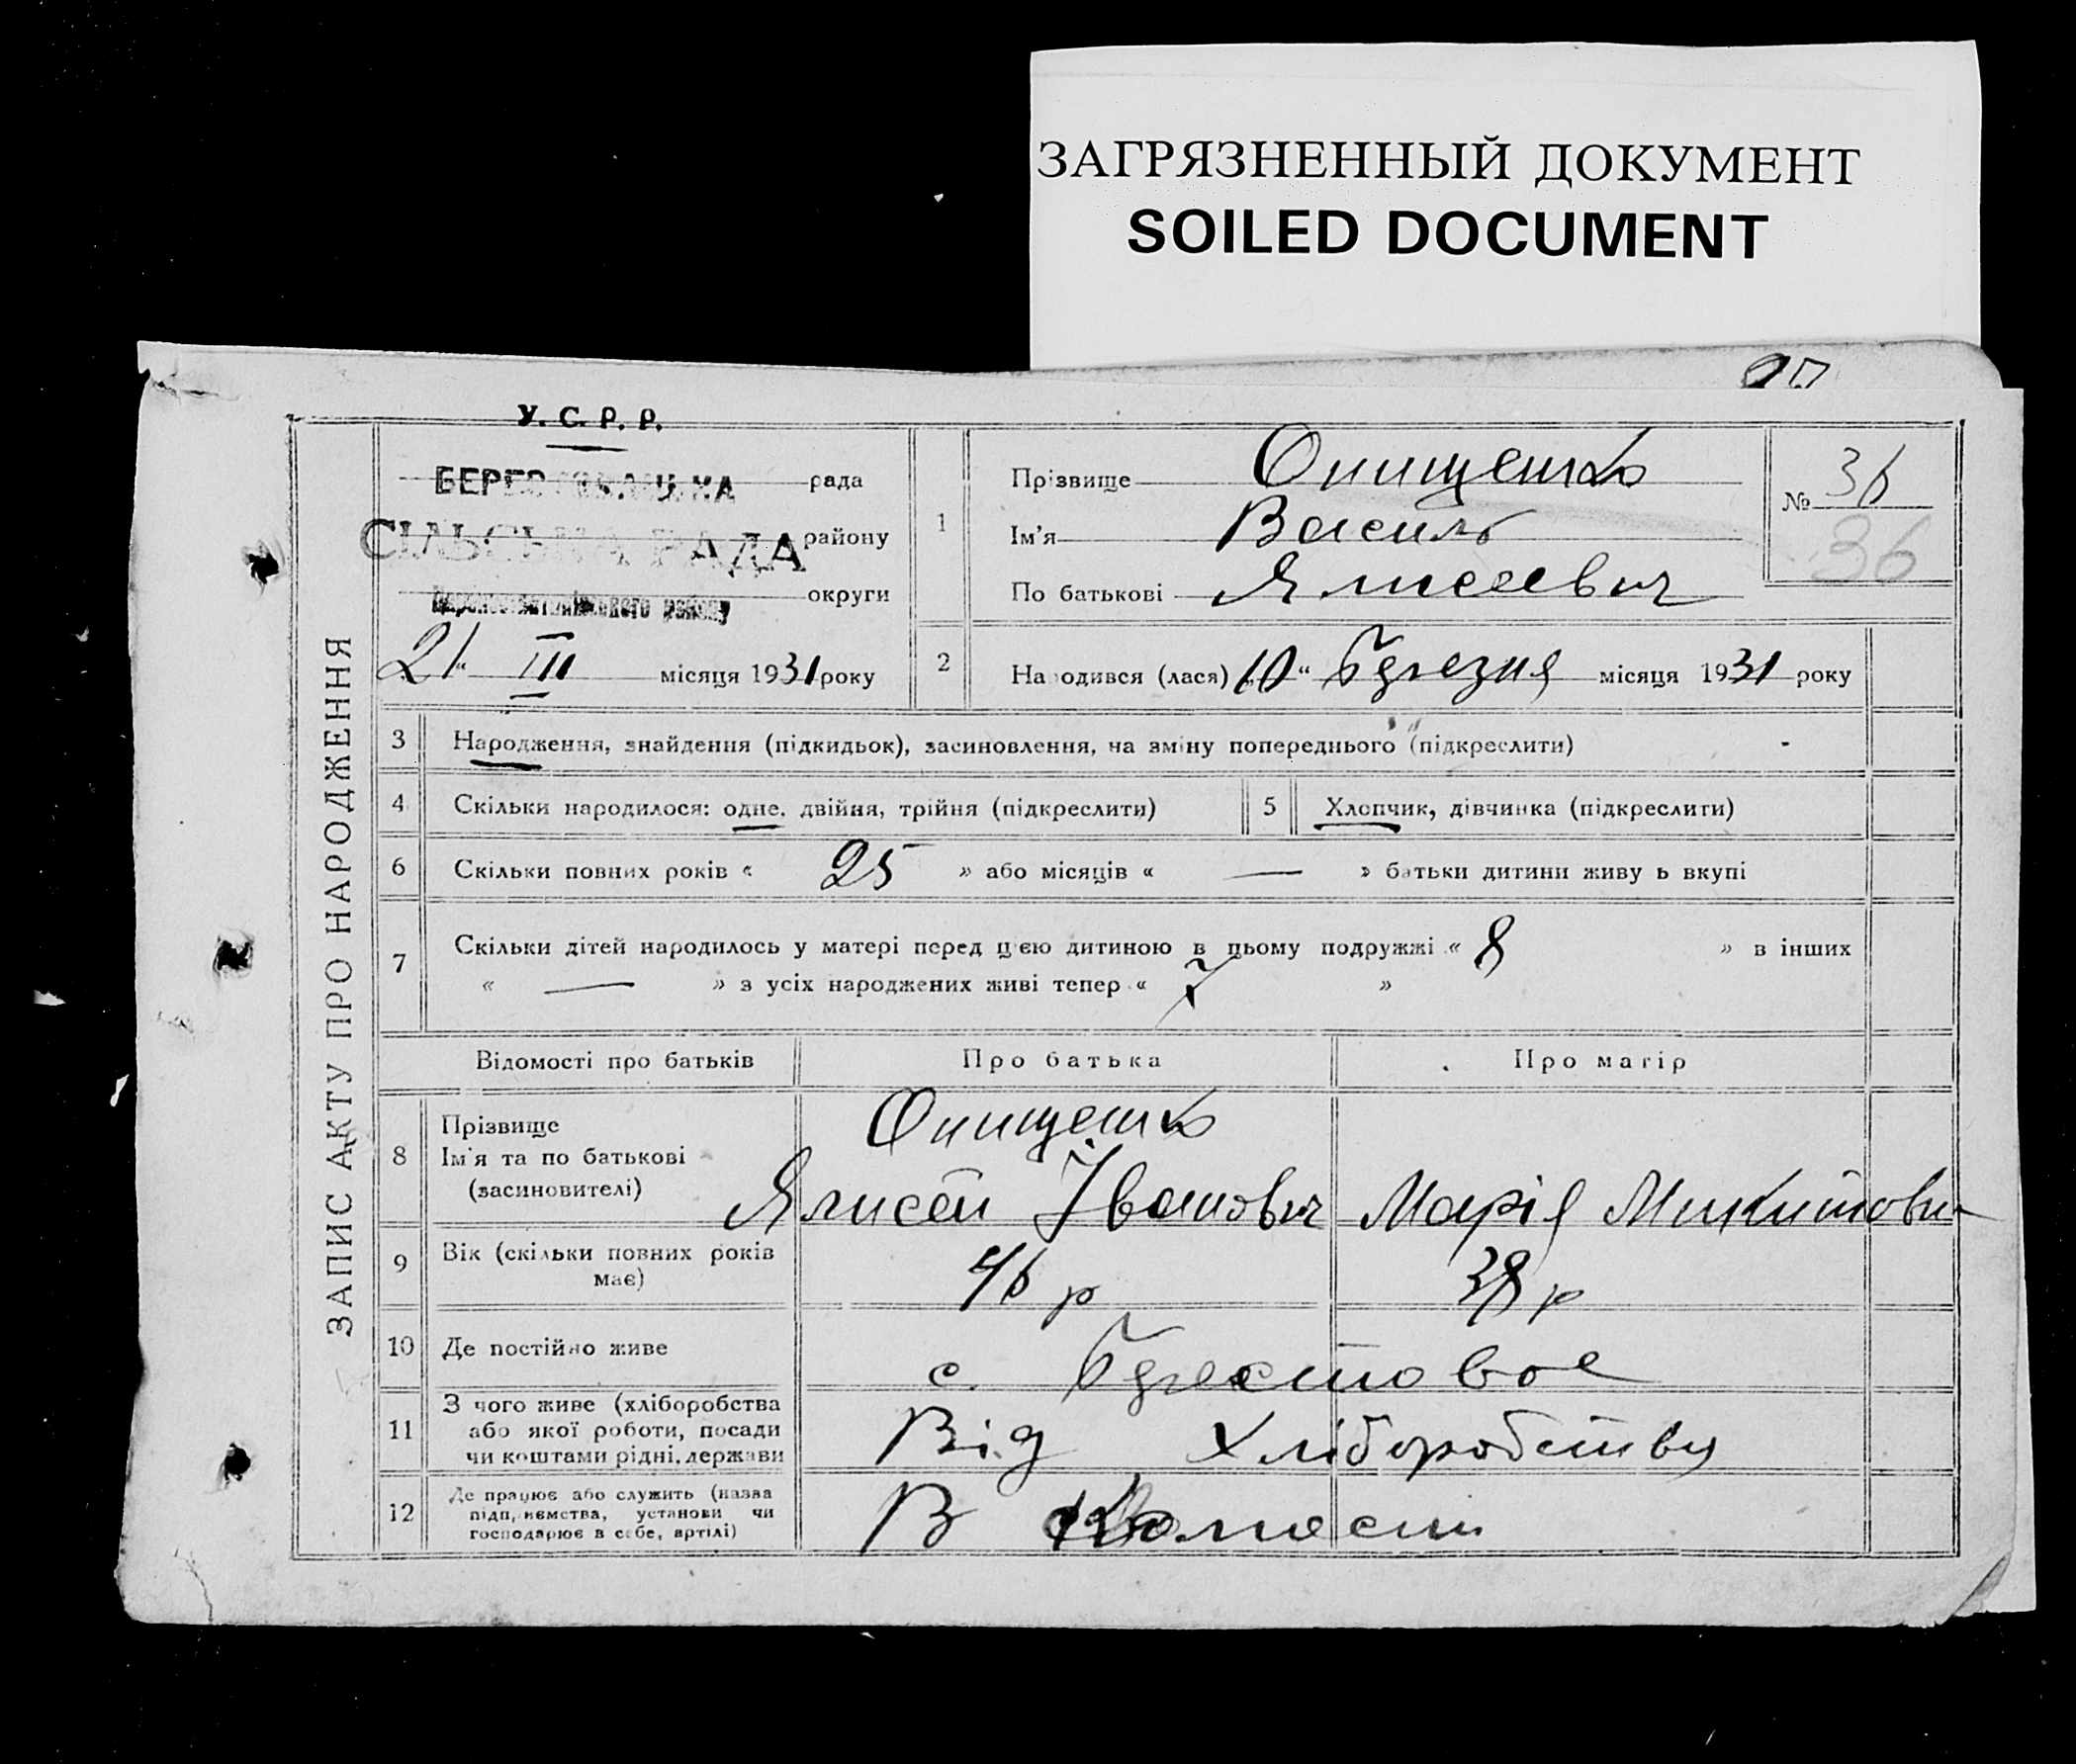 ЗАГРЯЗНЕННЫЙ ДОКУМЕНТ
SOILED DOCUMENT
У. С. Р. Р.
рада
СІЛЬСЬКА РАДА району
округи
21 " III місяця 1931 року
ЗАПИС АКТУ ПРО НАРОДЖЕННЯ
1 Прізвище Онищенко
Ім'я Василь
По батькові Ялисеевич
№ 36
36
2 Народився (лася) 10 " березня місяця 1931 року
3 Народження, знайдення (підкидьок), засиновлення, на зміну попереднього (підкреслити)
4 Скільки народилося: одне, двійня, трійня (підкреслити)
5 Хлопчик, дівчинка (підкреслити)
6 Скільки повних років « 25 » або місяців « — » батьки дитини живуть вкупі
7 Скільки дітей народилось у матері перед цією дитиною в цьому подружжі « 8 » в інших
« — » з усіх народжених живі тепер « 7 »
Відомості про батьків Про батька Про матір
8 Прізвище
Ім'я та по батькові
(засиновителі)
Онищенко
Ялисей Іванович Марія Микитовн
9 Вік (скільки повних років
має)
46 р 38 р
10 Де постійно живе с. Берестовое
11 З чого живе (хліборобства
або якої роботи, посади
чи коштами рідні, держави
Від Хліборобству
12 Де працює або служить (назва
підприємства, установи чи
господарює в себе, артілі)
В